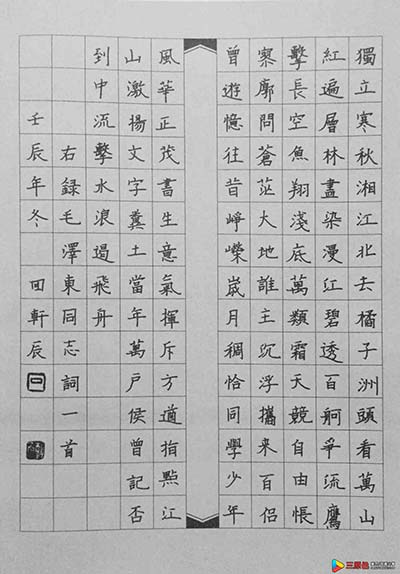 獨立寒秋湘江北去橘子洲頭看萬山
紅遍層林盡染漫江碧透百舸爭流鷹
擊長空魚翔淺底萬類霜天競自由悵
寥廓問蒼茫大地誰主沉浮攜来百侣
曾遊憶往昔崢嶸歲月稠恰同學少年
風華正茂書生意氣揮斥方遒指點江
山激揚文字糞土當年萬戶侯曾記否
到中流擊水浪遏飛舟
右録毛澤東同志詞一首
壬辰年冬 回軒辰